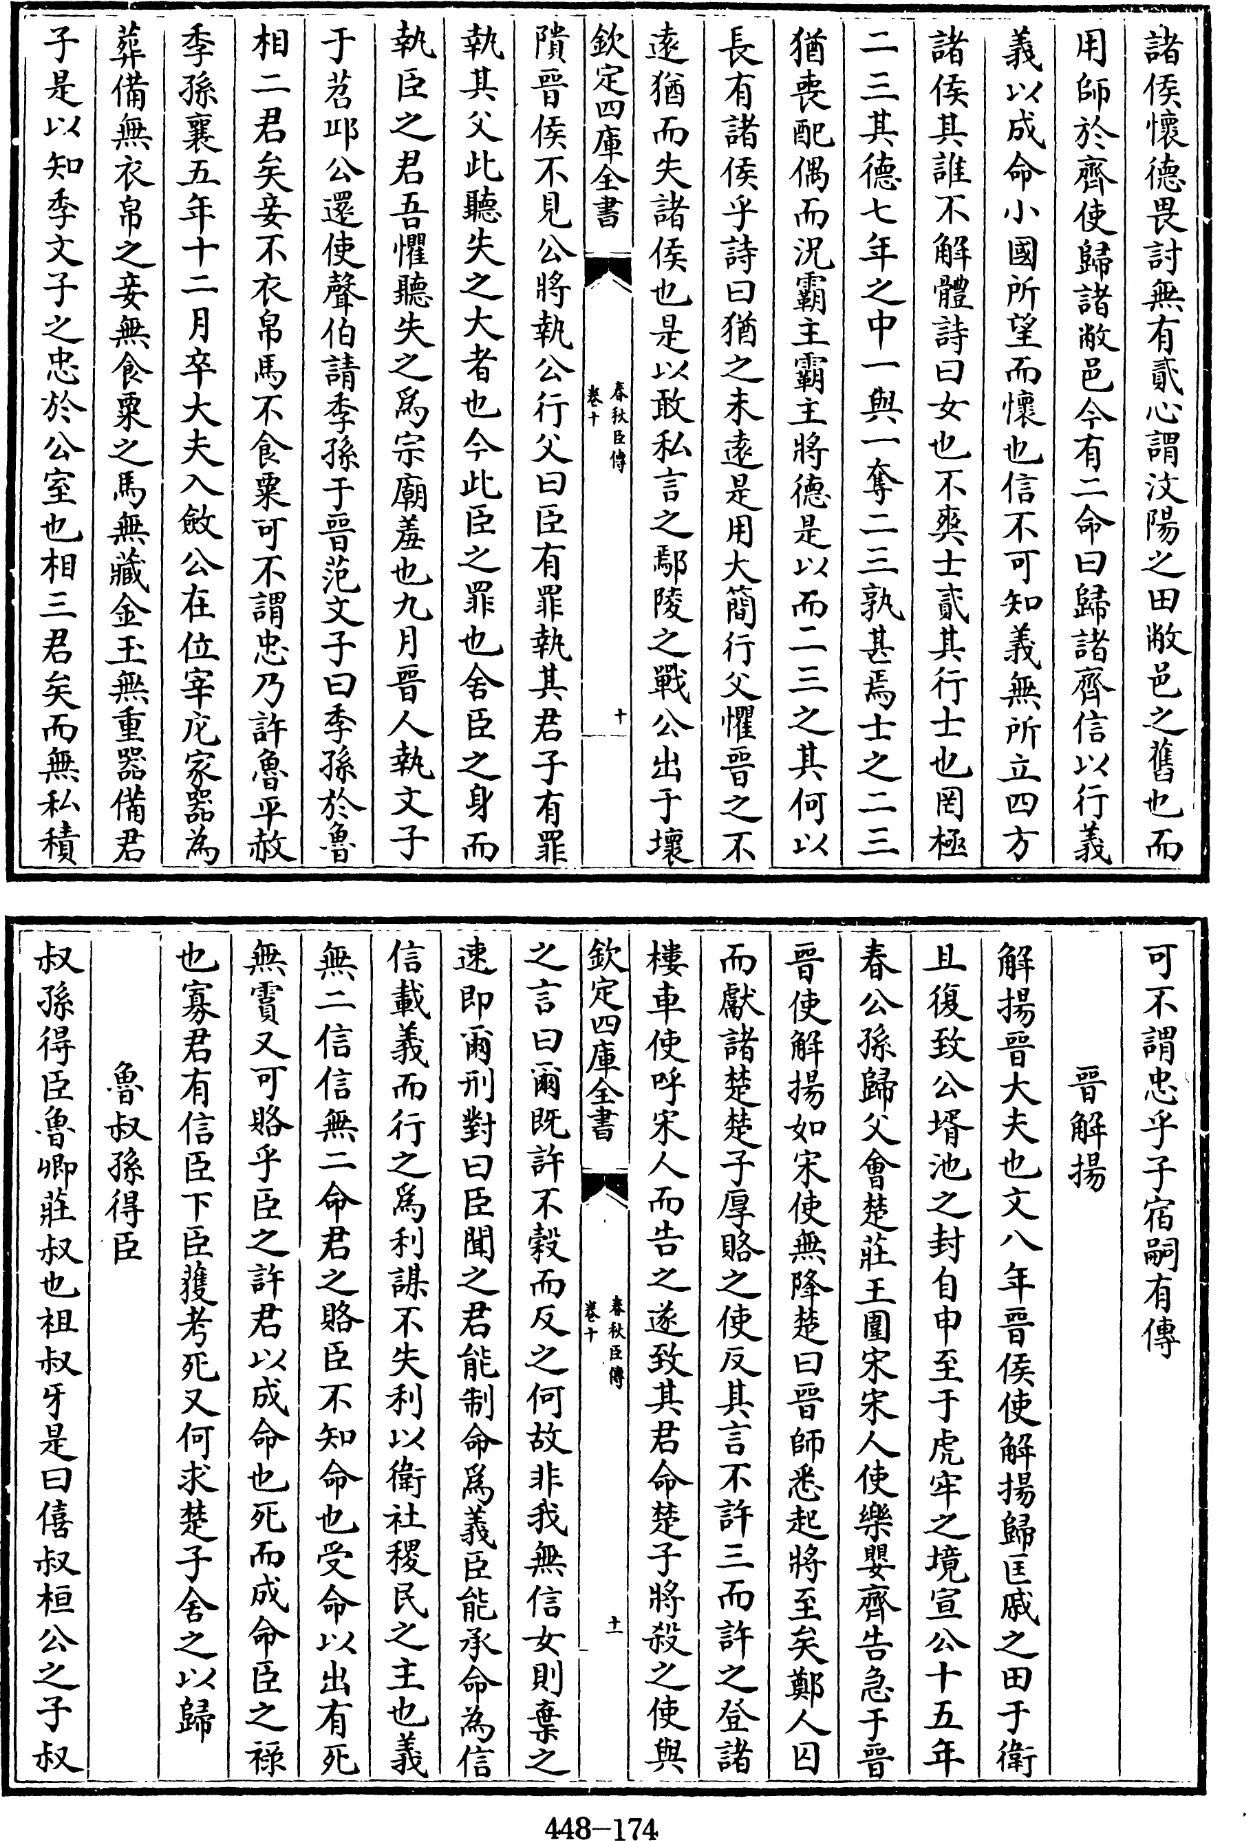 諸侯懷德畏討無有貳心謂汶陽之田敝邑之舊也而
用師於齊使歸諸敝邑今有二命曰歸諸齊信以行義
義以成命小國所望而懷也信不可知義無所立四方
諸侯其誰不解體詩曰女也不爽士貳其行士也罔極
二三其德七年之中一與一奪二三孰甚焉士之二三
猶喪配偶而況霸主霸主將德是以而二三之其何以
長有諸侯乎詩曰猶之未遠是用大簡行父懼晉之不
遠猶而失諸侯也是以敢私言之鄢陵之戰公出于壞
欽定四庫全書
春秋臣傳
卷十
十
隤晉侯不見公將執公行父曰臣有罪執其君子有罪
執其父此聽失之大者也今此臣之罪也舍臣之身而
執臣之君吾懼聽失之爲宗廟羞也九月晉人執文子
于苕丘公還使聲伯請季孫于晉范文子曰季孫於魯
相二君矣妾不衣帛馬不食粟可不謂忠乃許魯平赦
季孫襄五年十二月卒大夫入斂公在位宰庀家器為
葬備無衣帛之妾無食粟之馬無藏金玉無重器備君
子是以知季文子之忠於公室也相三君矣而無私積
可不謂忠乎子宿嗣有傳
晉解揚
解揚晉大夫也文八年晉侯使解揚歸匡戚之田于衛
且復致公壻池之封自申至于虎牢之境宣公十五年
春公孫歸父會楚莊王圍宋宋人使樂嬰齊告急于晉
晉使解揚如宋使無降楚曰晉師悉起將至矣鄭人囚
而獻諸楚楚子厚賂之使反其言不許三而許之登諸
樓車使呼宋人而告之遂致其君命楚子將殺之使與
欽定四庫全書
春秋臣傳
卷十
十一
之言曰爾既許不穀而反之何故非我無信女則棄之
速即爾刑對曰臣聞之君能制命爲義臣能承命為信
信載義而行之爲利謀不失利以衛社稷民之主也義
無二信信無二命君之賂臣不知命也受命以出有死
無霣又可賂乎臣之許君以成命也死而成命臣之祿
也寡君有信臣下臣獲考死又何求楚子舍之以歸
魯叔孫得臣
叔孫得臣魯卿莊叔也祖叔牙是曰僖叔桓公之子叔
448-174